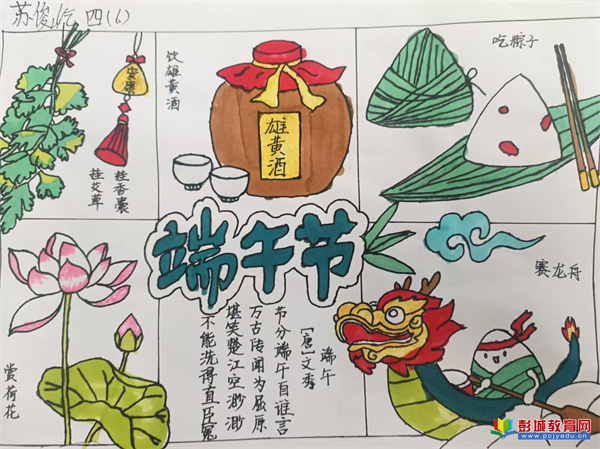 苏俊屹 四(6)
挂艾草
挂香囊
安康
饮雄黄酒
雄黄酒
吃粽子
端午节
赏荷花
端午
[唐]文秀
节分端午自谁言
万古传闻为屈原
堪笑楚江空渺渺
不能洗得直臣冤
赛龙舟
彭城教育网
www.pcjyedu.cn